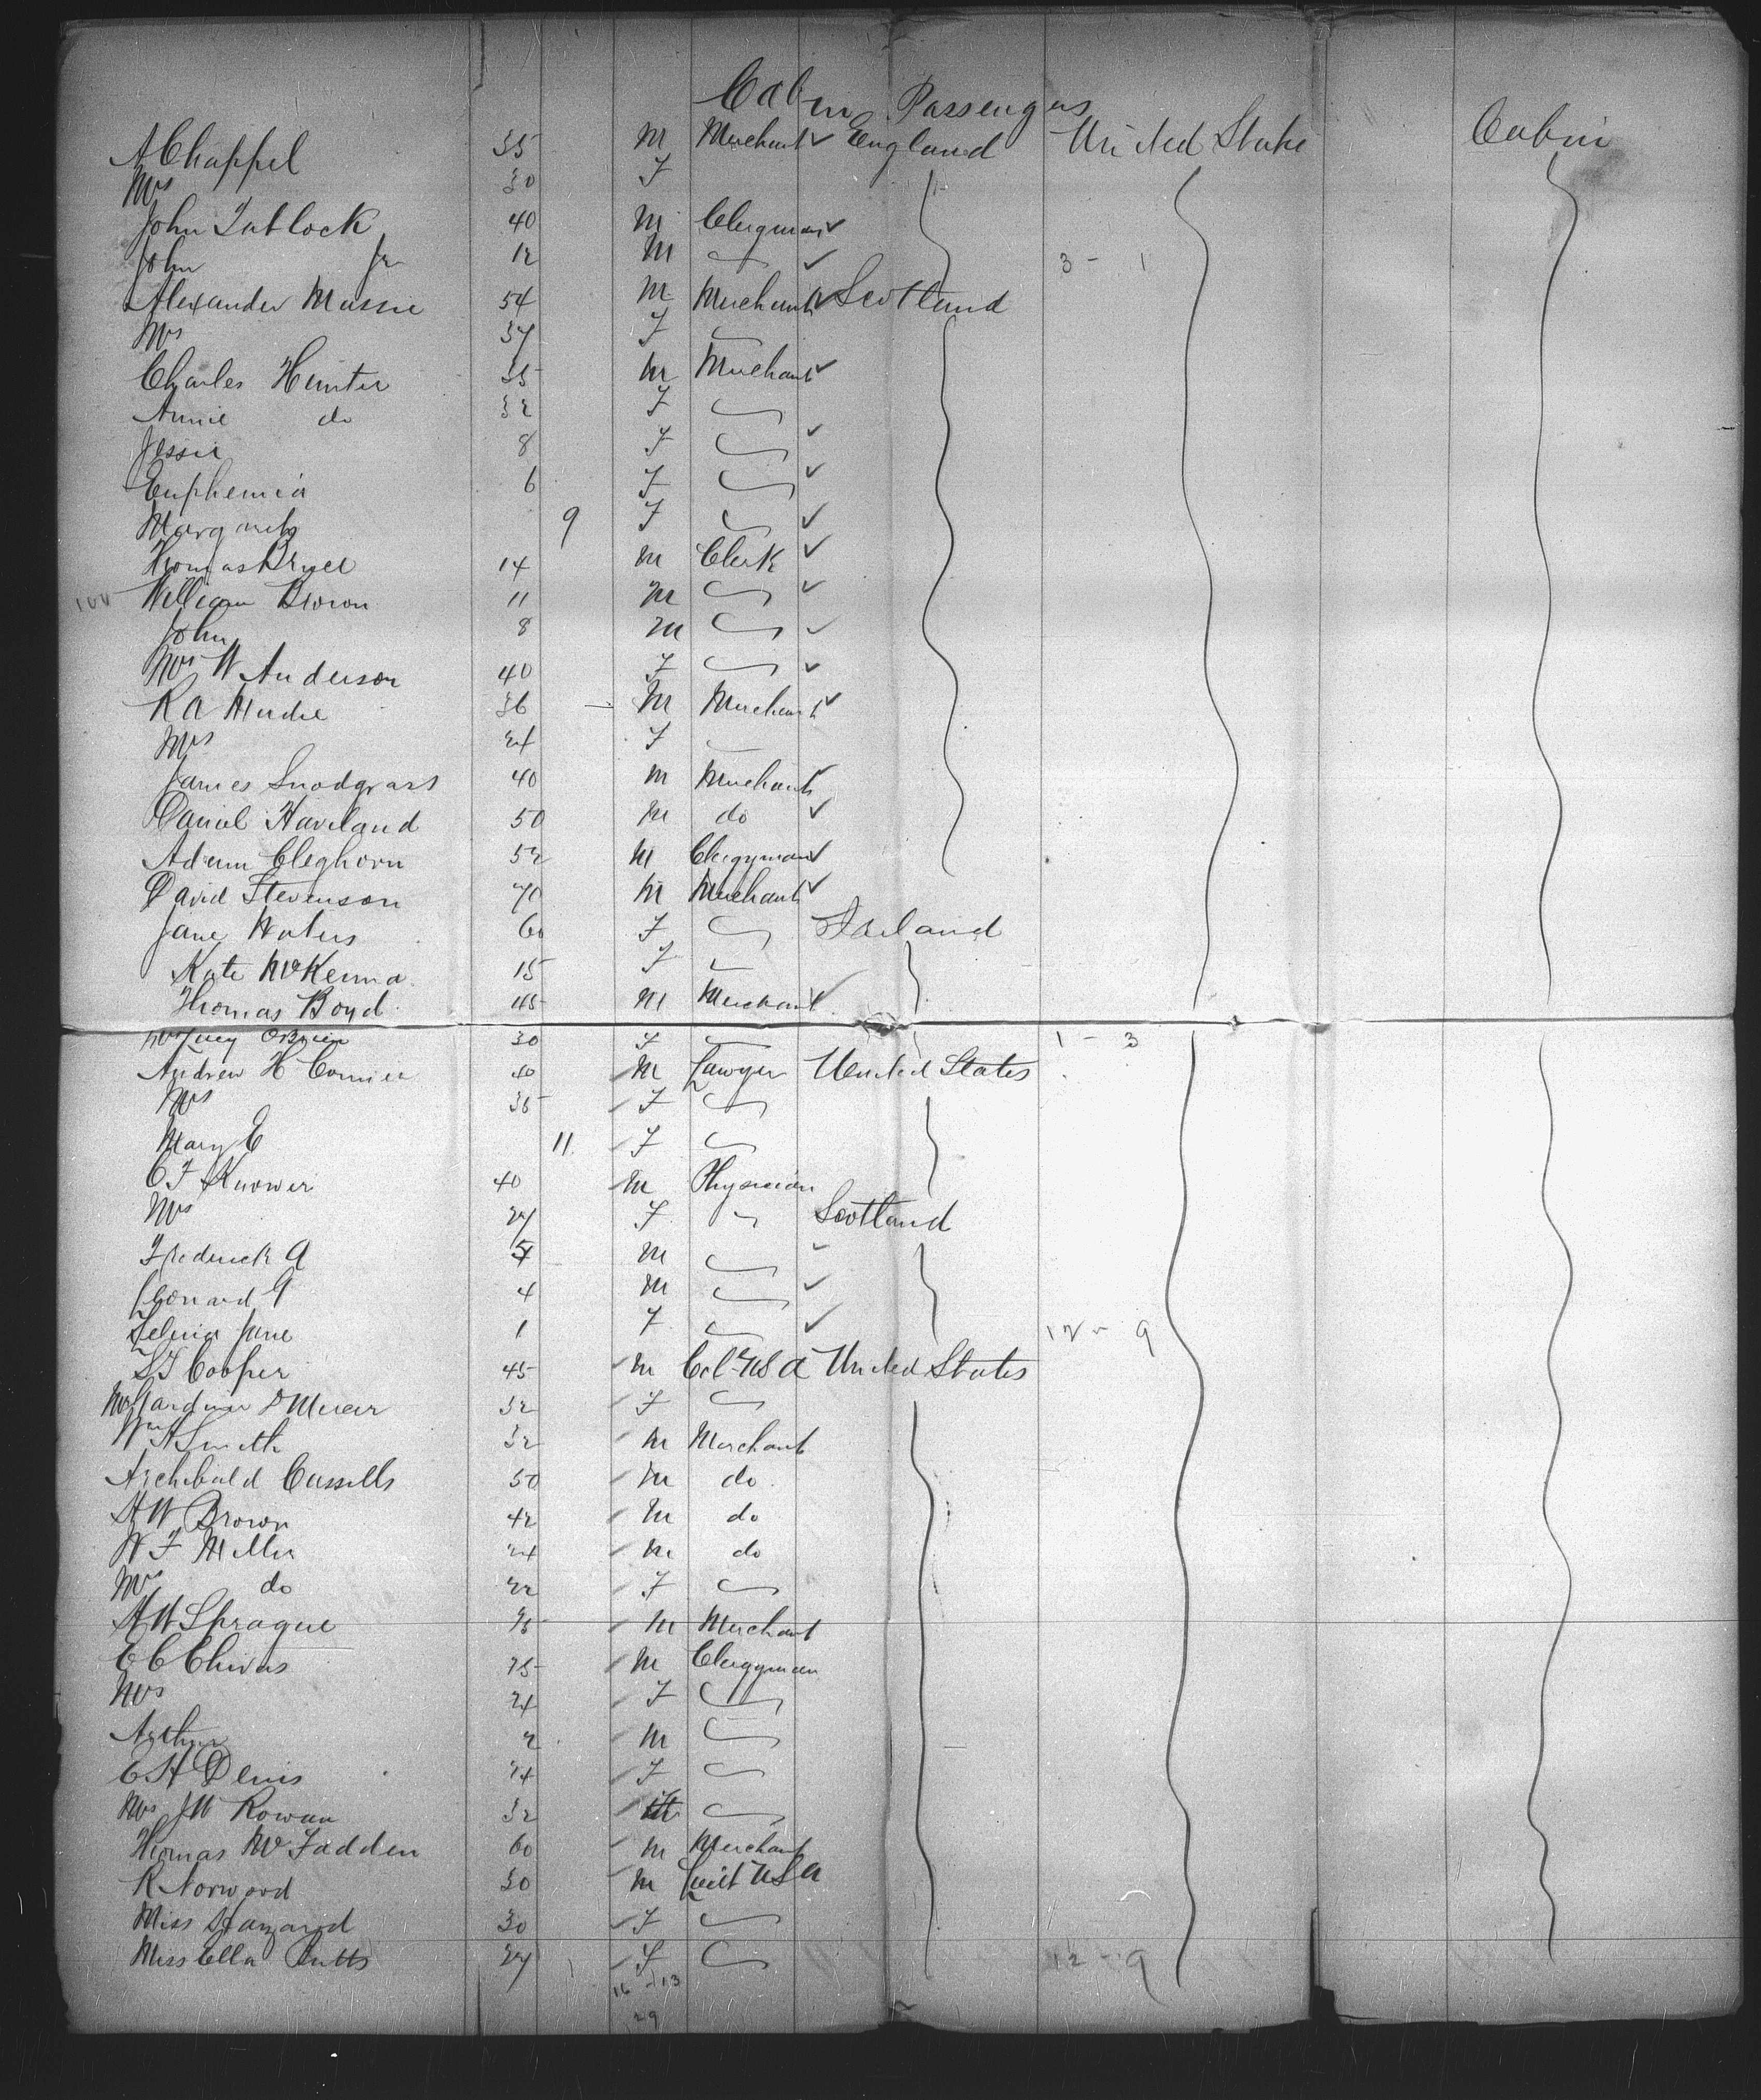 Cabin Passengers
A Chappel 35 M Merchant ✓ England United State Cabin
Mrs 30 F
John Tatlock 40 M Clergman ✓
John Jr 12 M ✓ 3 - 1
Alexander Massie 54 M Merchant ✓ Scotland
Mrs 37 F
Charles Hunter 35 M Merchant ✓
Annie do 32 F
Jessie 8 F ✓
Euphemia 6 F ✓
Margaret 9 F ✓
Thomas Bryce 14 M Clerk ✓
William Brown 11 M ✓
John 8 M ✓
Mrs W Anderson 40 F ✓
R A Mudie 36 M Merchant ✓
Mrs 24 F
James Snodgrass 40 M Merchant ✓
Daniel Haviland 50 M do ✓
Adam Cleghorn 52 M Clergyman ✓
David Stevenson 70 M Merchant ✓
Jane Waters 60 F Ireland
Kate McKenna 15 F
Thomas Boyd 45 M Merchant ✓
Mrs Lucy OBrien 30 F 1 - 3
Andrew H 40 M Lawyer United States
Mrs 35 F
Mary E 11 F
C F Knower 40 M Physician
Mrs 27 F Scotland
Frederick A 5 M ✓
Leonard G 4 M ✓
Selina Jane 1 F ✓ 12 - 9
Cooper 45 M Col USA United States
Mrs Gardiner D Mercer 32 F
Wm H Smith 32 M Merchant
Archibald Cassells 50 M do
H W Brown 42 M do
W F Miller 24 M do
Mrs do 22 F
H W Sprague M Merchant
E C Chivas 25 M Clergyman
Mrs 24 F
Arthur 2 M
E H Denis 24 F
Mrs J W Rowan 32 F
Thomas McFadden 60 M Merchant
R Norwood 30 M Leut USA
Miss Hazzard 30 F
Miss Ella Butts 27 F 12 - 9
16 - 13
29